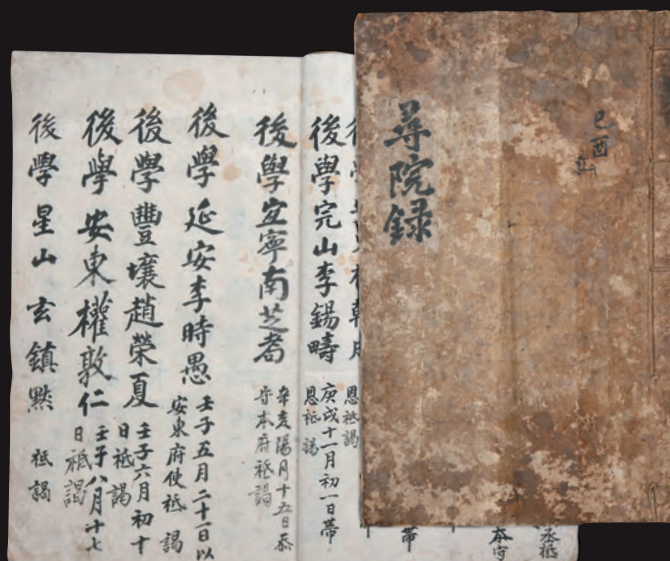 己酉
尋院録
恩祗謁
後學完山李錫疇
庚戌十一月初一日帶
恩祗謁
後學宜寧南芝耉
辛亥陽月十五日忝
守本府祗謁
後學延安李時愚
壬子五月二十一日以
安東府使祗謁
後學豐壤趙榮夏
壬子六月初十
日祗謁
後學安東權敦仁
壬子八月十七
日祗謁
後學星山玄鎮 祗謁